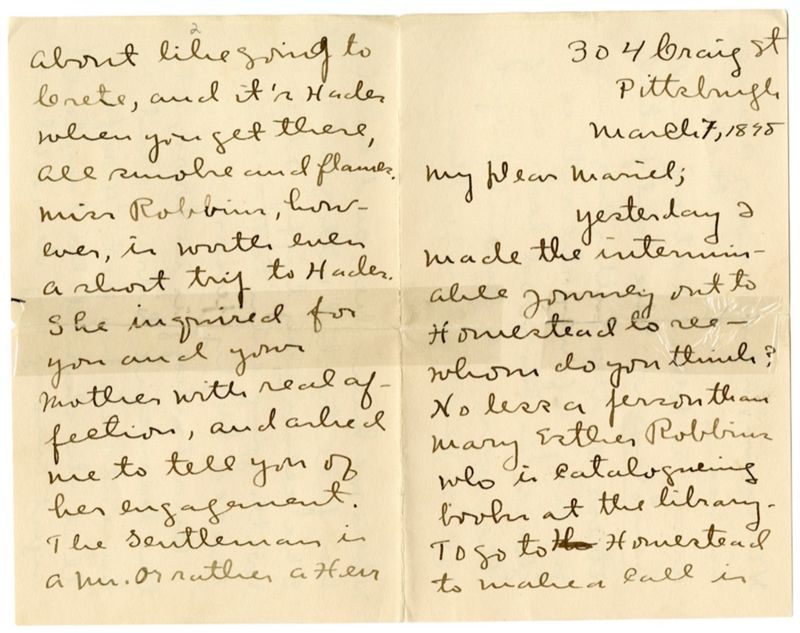 304 Craig St
Pittsburgh
March 7, 1898
My Dear Mariel;
Yesterday I
made the intermin-
able journey out to
Homestead to see—
whom do you think?
No less a person than
Mary Esther Robbins
who is catalogueing
books at the library.
To go to Homestead
to make a call is
2
about like going to
Crete, and it's Hades
when you get there,
all smoke and flames.
Miss Robbins, how-
ever, is worth even
a short trip to Hades.
She inquired for
you and your
Mother with real af-
fection, and asked
me to tell you of
her engagement.
The Gentleman is
a Mr. Or rather a Herr